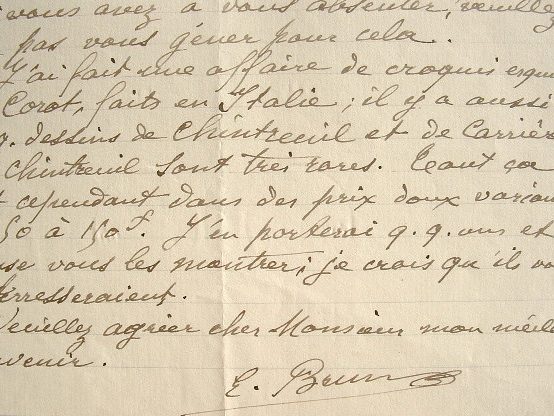 vous avez à vous absenter, veuillez
pas vous gêner pour cela.
J'ai fait une affaire de croquis esqu
Corot, faits en Italie ; il y a aussi
q. dessins de Chintreuil et de Carrièr
chintreuil sont très rares. Tout ça
cependant dans des prix doux varian
50 à 150f. J'en porterai q.q. uns et
se vous les montrer ; je crois qu'ils vo
térresseraient.
Veuillez agréer cher Monsieur mon meille
venir.
E. Brun